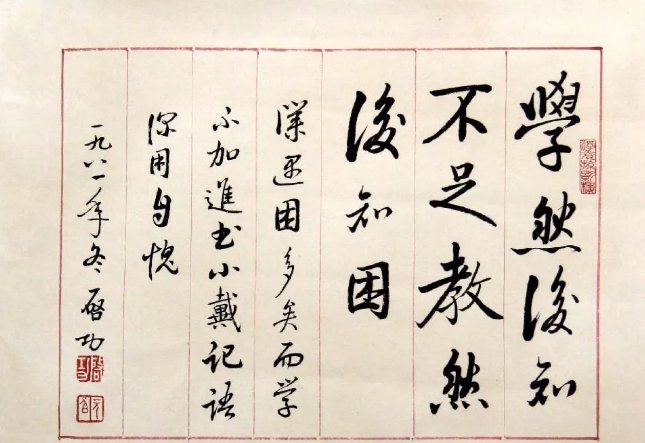 學然後知
不足教然
後知困
課還困多矣而学
不加進书小戴记语
深用自愧
一九八一年冬启功